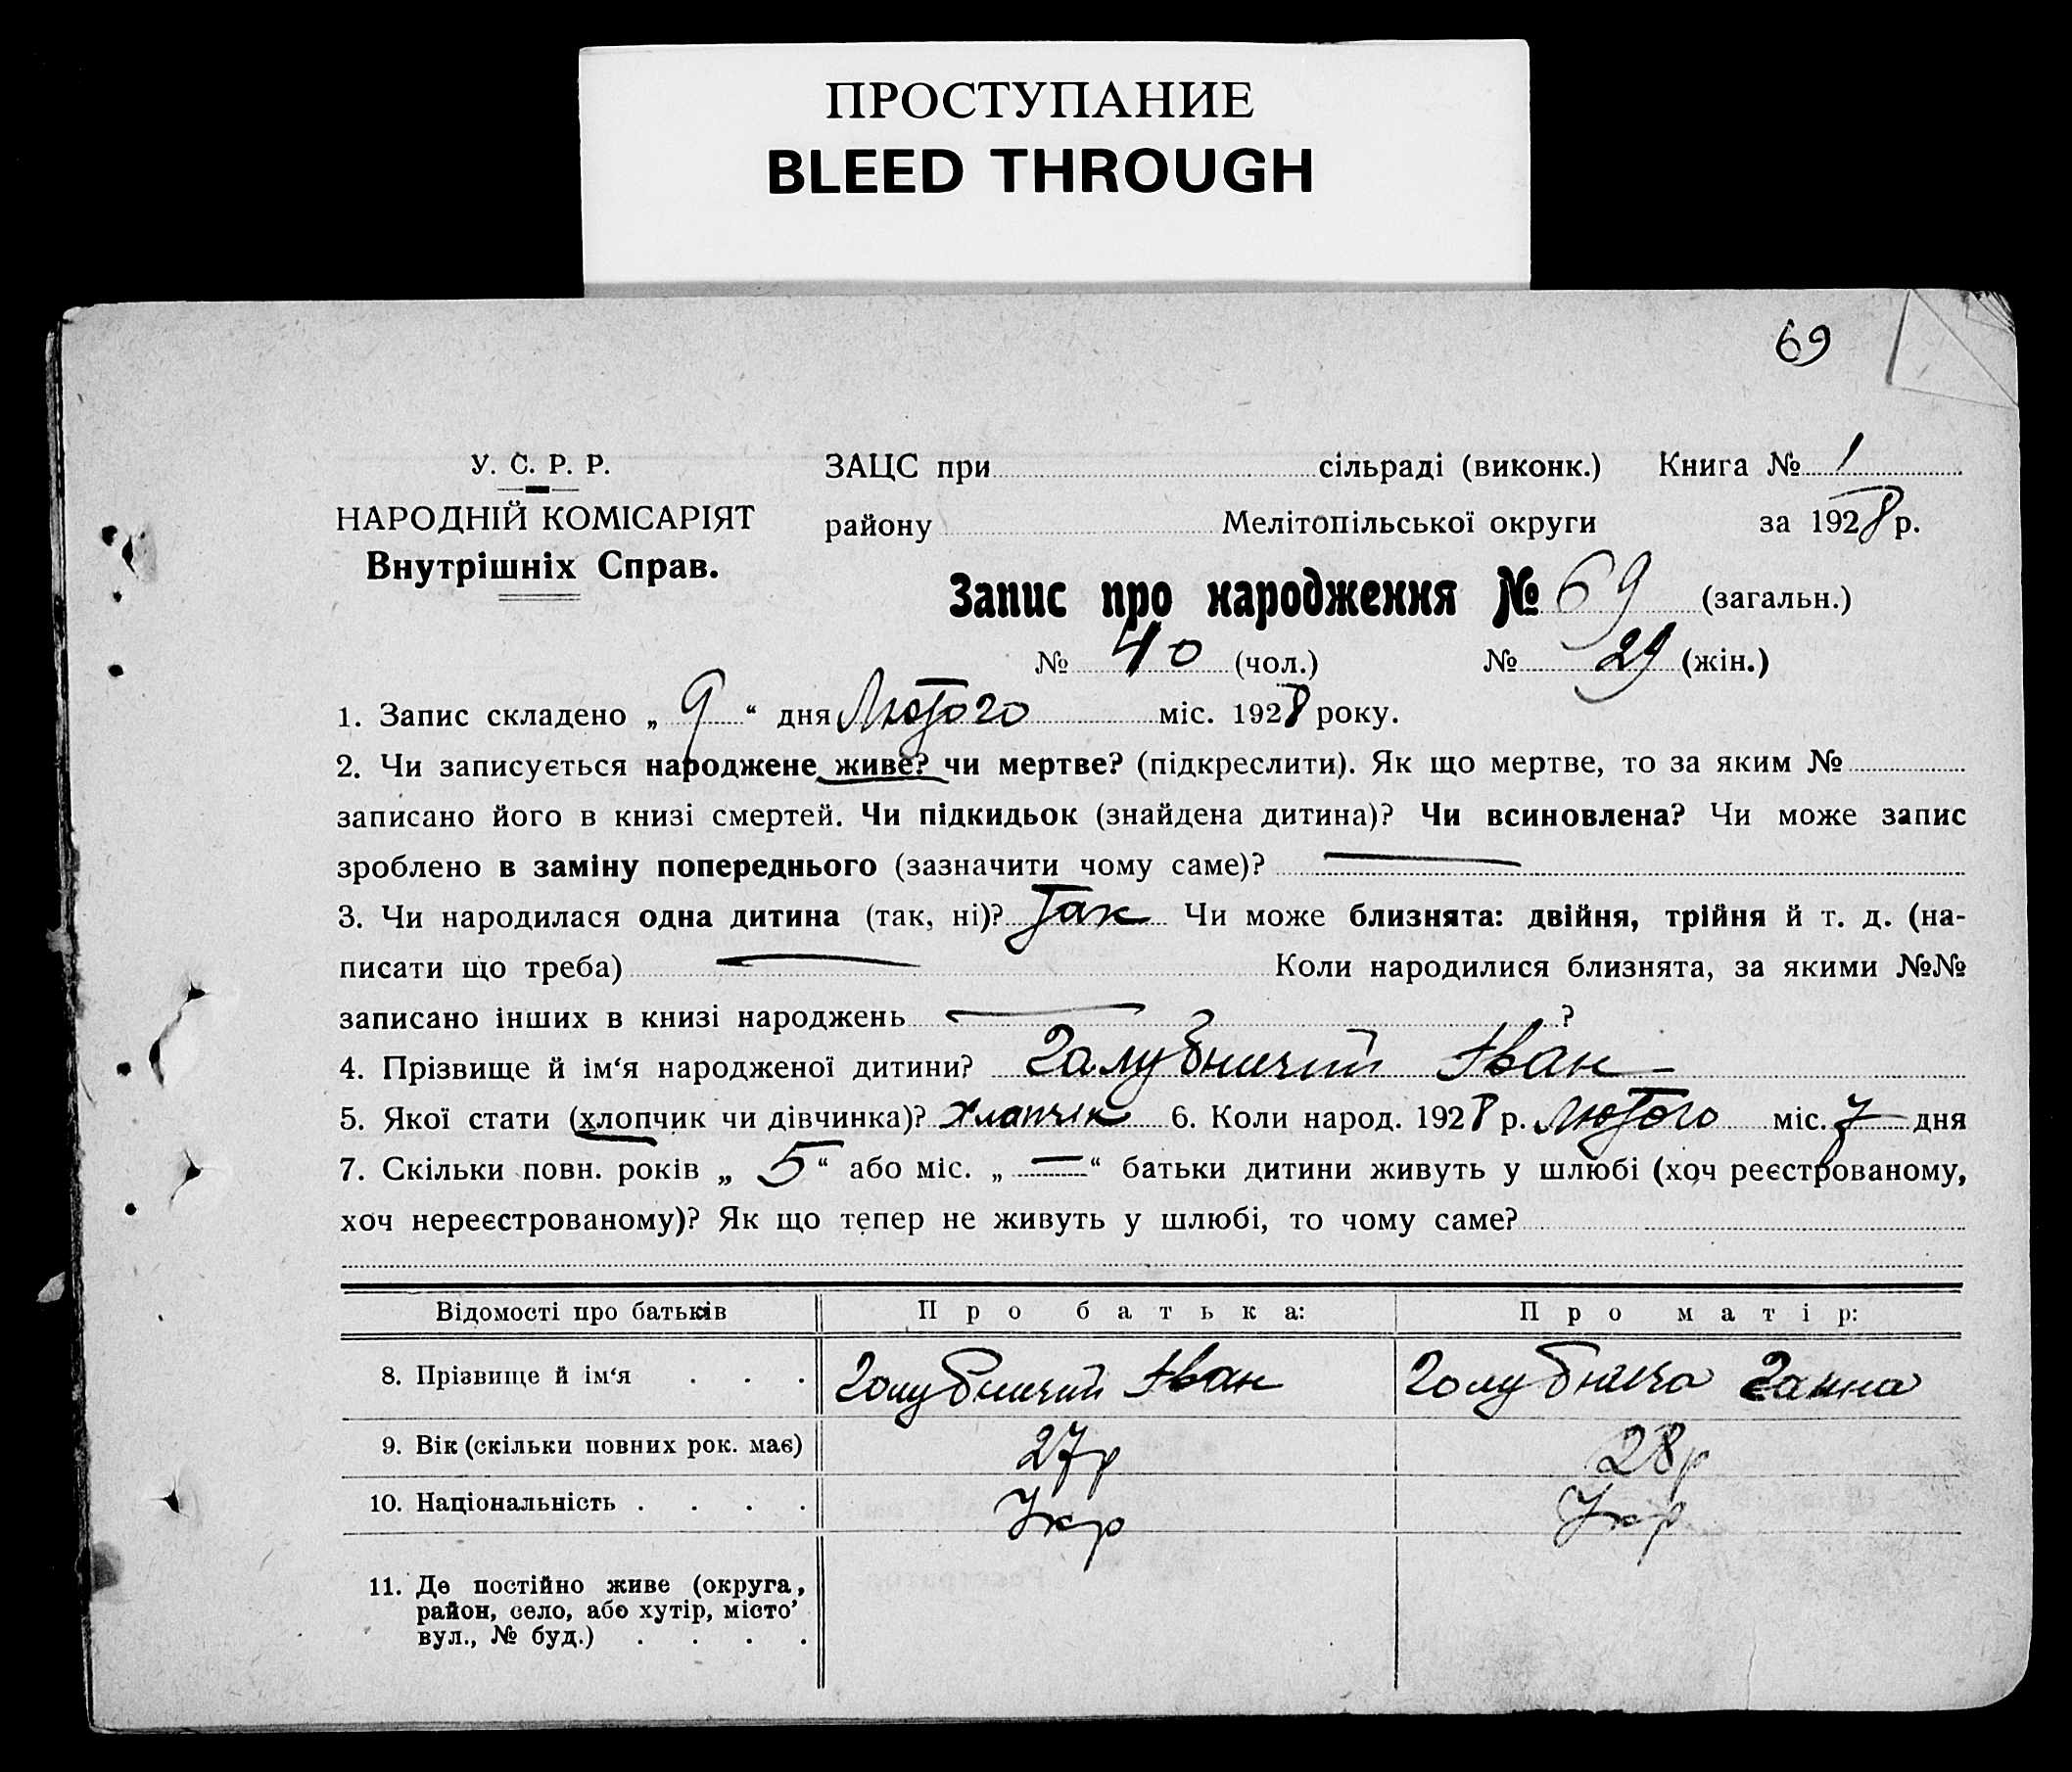 ПРОСТУПАНИЕ
BLEED THROUGH
69
У. С. Р. Р.
НАРОДНІЙ КОМІСАРІЯТ
Внутрішніх Справ.
ЗАЦС при сільраді (виконк.) Книга № 1
району Мелітопільської округи за 1928 р.
Запис про народження № 69 (загальн.)
№ 40 (чол.) № 29 (жін.)
1. Запис складено „ 9 “ дня Лютого міс. 1928 року.
2. Чи записується народжене живе? чи мертве? (підкреслити). Як що мертве, то за яким №
записано його в книзі смертей. Чи підкидьок (знайдена дитина)? Чи всиновлена? Чи може запис
зроблено в заміну попереднього (зазначити чому саме)? —
3. Чи народилася одна дитина (так, ні)? Так Чи може близнята: двійня, трійня й т. д. (на-
писати що треба) — Коли народилися близнята, за якими №№
записано інших в книзі народжень — ?
4. Прізвище й ім‘я народженої дитини? Галубничий Іван —
5. Якої стати (хлопчик чи дівчинка)? Хлапчік 6. Коли народ. 1928 р. Лютого міс. 7 дня
7. Скільки повн. років „ 5 “ або міс. „ — “ батьки дитини живуть у шлюбі (хоч реєстрованому,
хоч нереєстрованому)? Як що тепер не живуть у шлюбі, то чому саме?
Відомості про батьків Про батька: Про матір:
8. Прізвище й ім‘я . . . Голубничий Іван Голубнича Ганна
9. Вік (скільки повних рок. має) 27 р 28 р
10. Національність . . . . Укр Укр
11. Де постійно живе (округа,
район, село, або хутір, місто’
вул., № буд.) . . . .